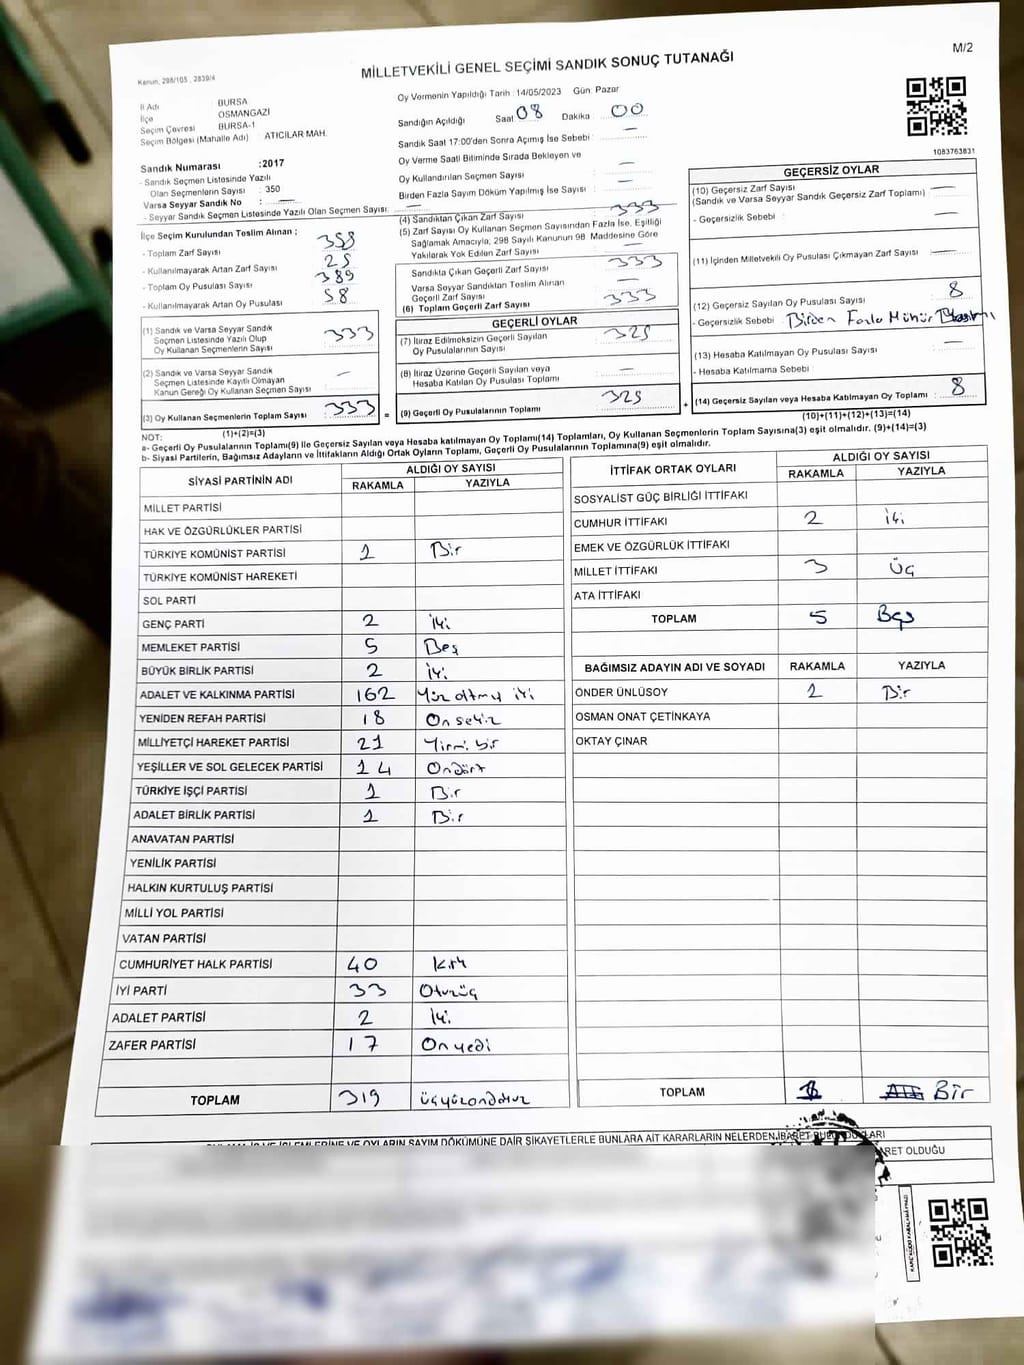 Kanun, 298/105 , 2839/4
MİLLETVEKİLİ GENEL SEÇİMİ SANDIK SONUÇ TUTANAĞI
M/2
İl Adı : BURSA
İlçe : OSMANGAZİ
Seçim Çevresi : BURSA-1
Seçim Bölgesi (Mahalle Adı) : ATICILAR MAH.
Oy Vermenin Yapıldığı Tarih : 14/05/2023 Gün: Pazar
Sandığın Açıldığı Saat 08 Dakika : 00
Sandık Saat 17:00'den Sonra Açımış İse Sebebi : —
Oy Verme Saati Bitiminde Sırada Bekleyen ve
Oy Kullandırılan Seçmen Sayısı : —
Birden Fazla Sayım Döküm Yapılmış İse Sayısı : —
1083763831
Sandık Numarası : 2017
- Sandık Seçmen Listesinde Yazılı
Olan Seçmenlerin Sayısı : 350
Varsa Seyyar Sandık No : —
- Seyyar Sandık Seçmen Listesinde Yazılı Olan Seçmen Sayısı : —
İlçe Seçim Kurulundan Teslim Alınan ;
- Toplam Zarf Sayısı : 358
- Kullanılmayarak Artan Zarf Sayısı : 25
- Toplam Oy Pusulası Sayısı : 389
- Kullanılmayarak Artan Oy Pusulası : 58
(1) Sandık ve Varsa Seyyar Sandık
Seçmen Listesinde Yazılı Olup
Oy Kullanan Seçmenlerin Sayısı : 333
(2) Sandık ve Varsa Seyyar Sandık
Seçmen Listesinde Kayıtlı Olmayan
Kanun Gereği Oy Kullanan Seçmen Sayısı : —
(3) Oy Kullanan Seçmenlerin Toplam Sayısı : 333 =
(1)+(2)=(3)
(4) Sandıktan Çıkan Zarf Sayısı : 333
(5) Zarf Sayısı Oy Kullanan Seçmen Sayısından Fazla İse, Eşitliği
Sağlamak Amacıyla, 298 Sayılı Kanunun 98. Maddesine Göre
Yakılarak Yok Edilen Zarf Sayısı : —
Sandıkta Çıkan Geçerli Zarf Sayısı : 333
Varsa Seyyar Sandıktan Teslim Alınan
Geçerli Zarf Sayısı : —
(6) Toplam Geçerli Zarf Sayısı : 333
GEÇERLİ OYLAR
(7) İtiraz Edilmeksizin Geçerli Sayılan
Oy Pusulalarının Sayısı : 325
(8) İtiraz Üzerine Geçerli Sayılan veya
Hesaba Katılan Oy Pusulası Toplamı : —
(9) Geçerli Oy Pusulalarının Toplamı : 325 +
GEÇERSİZ OYLAR
(10) Geçersiz Zarf Sayısı
(Sandık ve Varsa Seyyar Sandık Geçersiz Zarf Toplamı) : —
- Geçersizlik Sebebi : —
(11) İçinden Milletvekili Oy Pusulası Çıkmayan Zarf Sayısı : —
(12) Geçersiz Sayılan Oy Pusulası Sayısı : 8
- Geçersizlik Sebebi : Birden Fazla Mühür Basımı
(13) Hesaba Katılmayan Oy Pusulası Sayısı : —
- Hesaba Katılmama Sebebi :
(14) Geçersiz Sayılan veya Hesaba Katılmayan Oy Toplamı : 8
(10)+(11)+(12)+(13)=(14)
NOT:
a- Geçerli Oy Pusulalarının Toplamı(9) İle Geçersiz Sayılan veya Hesaba katılmayan Oy Toplamı(14) Toplamları, Oy Kullanan Seçmenlerin Toplam Sayısına(3) eşit olmalıdır. (9)+(14)=(3)
b- Siyasi Partilerin, Bağımsız Adayların ve İttifakların Aldığı Ortak Oyların Toplamı, Geçerli Oy Pusulalarının Toplamına(9) eşit olmalıdır.
SİYASİ PARTİNİN ADI ALDIĞI OY SAYISI
RAKAMLA YAZIYLA
MİLLET PARTİSİ
HAK VE ÖZGÜRLÜKLER PARTİSİ
TÜRKİYE KOMÜNİST PARTİSİ 1 Bir
TÜRKİYE KOMÜNİST HAREKETİ
SOL PARTİ
GENÇ PARTİ 2 iki
MEMLEKET PARTİSİ 5 Beş
BÜYÜK BİRLİK PARTİSİ 2 iki
ADALET VE KALKINMA PARTİSİ 162 Yüz altmış iki
YENİDEN REFAH PARTİSİ 18 On sekiz
MİLLİYETÇİ HAREKET PARTİSİ 21 Yirmi bir
YEŞİLLER VE SOL GELECEK PARTİSİ 14 Ondört
TÜRKİYE İŞÇİ PARTİSİ 1 Bir
ADALET BİRLİK PARTİSİ 1 Bir
ANAVATAN PARTİSİ
YENİLİK PARTİSİ
HALKIN KURTULUŞ PARTİSİ
MİLLİ YOL PARTİSİ
VATAN PARTİSİ
CUMHURİYET HALK PARTİSİ 40 Kırk
İYİ PARTİ 33 Otuzüç
ADALET PARTİSİ 2 iki
ZAFER PARTİSİ 17 On yedi
TOPLAM 319 üçyüzondokuz
İTTİFAK ORTAK OYLARI ALDIĞI OY SAYISI
RAKAMLA YAZIYLA
SOSYALİST GÜÇ BİRLİĞİ İTTİFAKI
CUMHUR İTTİFAKI 2 iki
EMEK VE ÖZGÜRLÜK İTTİFAKI
MİLLET İTTİFAKI 3 Üç
ATA İTTİFAKI
TOPLAM 5 Beş
BAĞIMSIZ ADAYIN ADI VE SOYADI RAKAMLA YAZIYLA
ÖNDER ÜNLÜSOY 1 Bir
OSMAN ONAT ÇETİNKAYA
OKTAY ÇINAR
TOPLAM 1 Bir
İŞLEMLERİNE VE OYLARIN SAYIM DÖKÜMÜNE DAİR ŞİKAYETLERLE BUNLARA AİT KARARLARIN NELERDEN İBARET
OLDUĞU